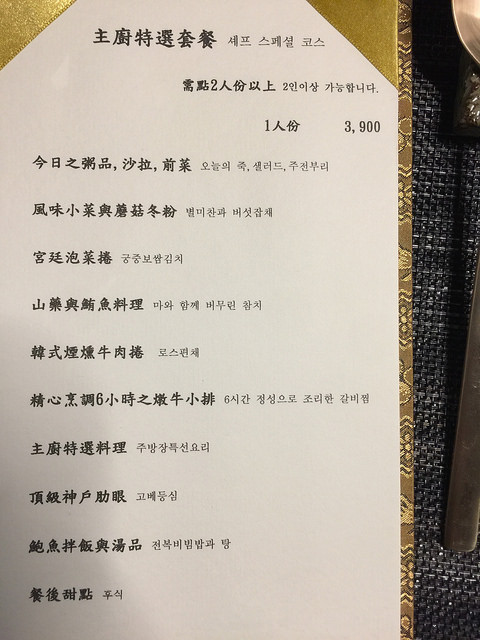 主廚特選套餐 셰프 스페셜 코스
需點2人份以上 2인이상 가능합니다.
1人份 3,900
今日之粥品,沙拉,前菜 오늘의 죽,샐러드,주전부리
風味小菜與蘑菇冬粉 별미찬과 버섯잡채
宮廷泡菜捲 궁중보쌈김치
山藥與鮪魚料理 마와 함께 버무린 참치
韓式煙燻牛肉捲 로스편채
精心烹調6小時之燉牛小排 6시간 정성으로 조리한 갈비찜
主廚特選料理 주방장특선요리
頂級神戶肋眼 고베등심
鮑魚拌飯與湯品 전복비빔밥과 탕
餐後甜點 후식